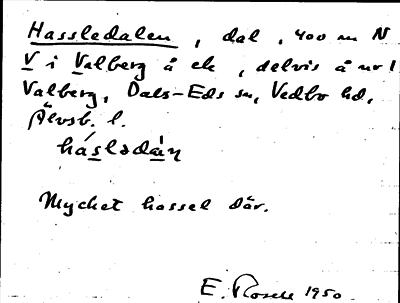 Hassledalen, dal, 400 m N
V i Valberg å ek, delvis å nr 1
Valberg, Dals-Eds sn, Vedbo hd,
Älvsb. l.
háslədàn
Mycket hassel där.
E. Rosell 1950